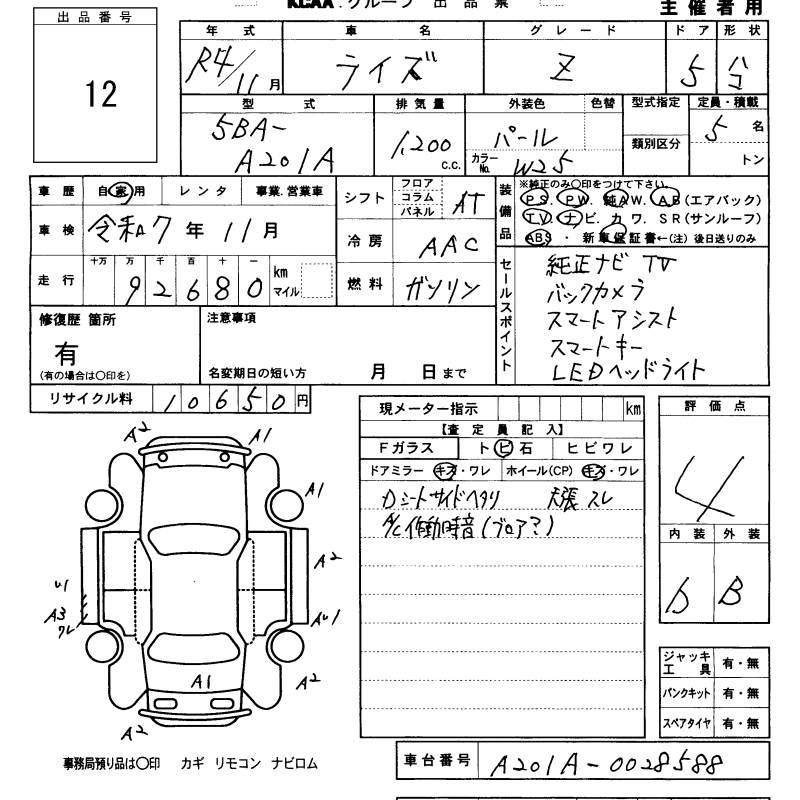 KCAA.グループ 出品票
主催者用
出品番号
12
年式 車名 グレード ドア 形状
R4/11月 ライズ Z 5 ハコ
型式 排気量 外装色 色替 型式指定 定員・積載
5BA-A201A 1,200 C.C. パール 類別区分 5名
カラーNo. W25 トン
車歴 自家用 レンタ 事業.営業車
車検 令和7年11月
走行 十万 万 千 百 十 一 km マイル
92680
シフト フロア コラム パネル AT
冷房 AAC
燃料 ガソリン
装備品 ※純正のみ〇印をつけて下さい。
PS. PW. 純AW. AB(エアバック)
TV. ナビ. カワ. SR(サンルーフ)
ABS ・ 新車保証書←(注) 後日送りのみ
セールスポイント
純正ナビ TV
バックカメラ
スマートアシスト
スマートキー
LEDヘッドライト
修復歴 箇所
有
(有の場合は〇印を)
注意事項
名変期日の短い方 月 日まで
リサイクル料 10650円
現メーター指示 km
【査定員記入】
Fガラス ト ビ 石 ヒビワレ
ドアミラー キズ・ワレ ホイール(CP) キズ・ワレ
Dシートサイドヘタリ 天張スレ
A/C作動時音(ブロア?)
評価点
4
内装 外装
D B
ジャッキ工具 有・無
パンクキット 有・無
スペアタイヤ 有・無
A2 A1
A1
A2
U1
A3
ワレ
AU1
A1
A2
A2
事務局預り品は〇印 カギ リモコン ナビロム
車台番号 A201A-0028588